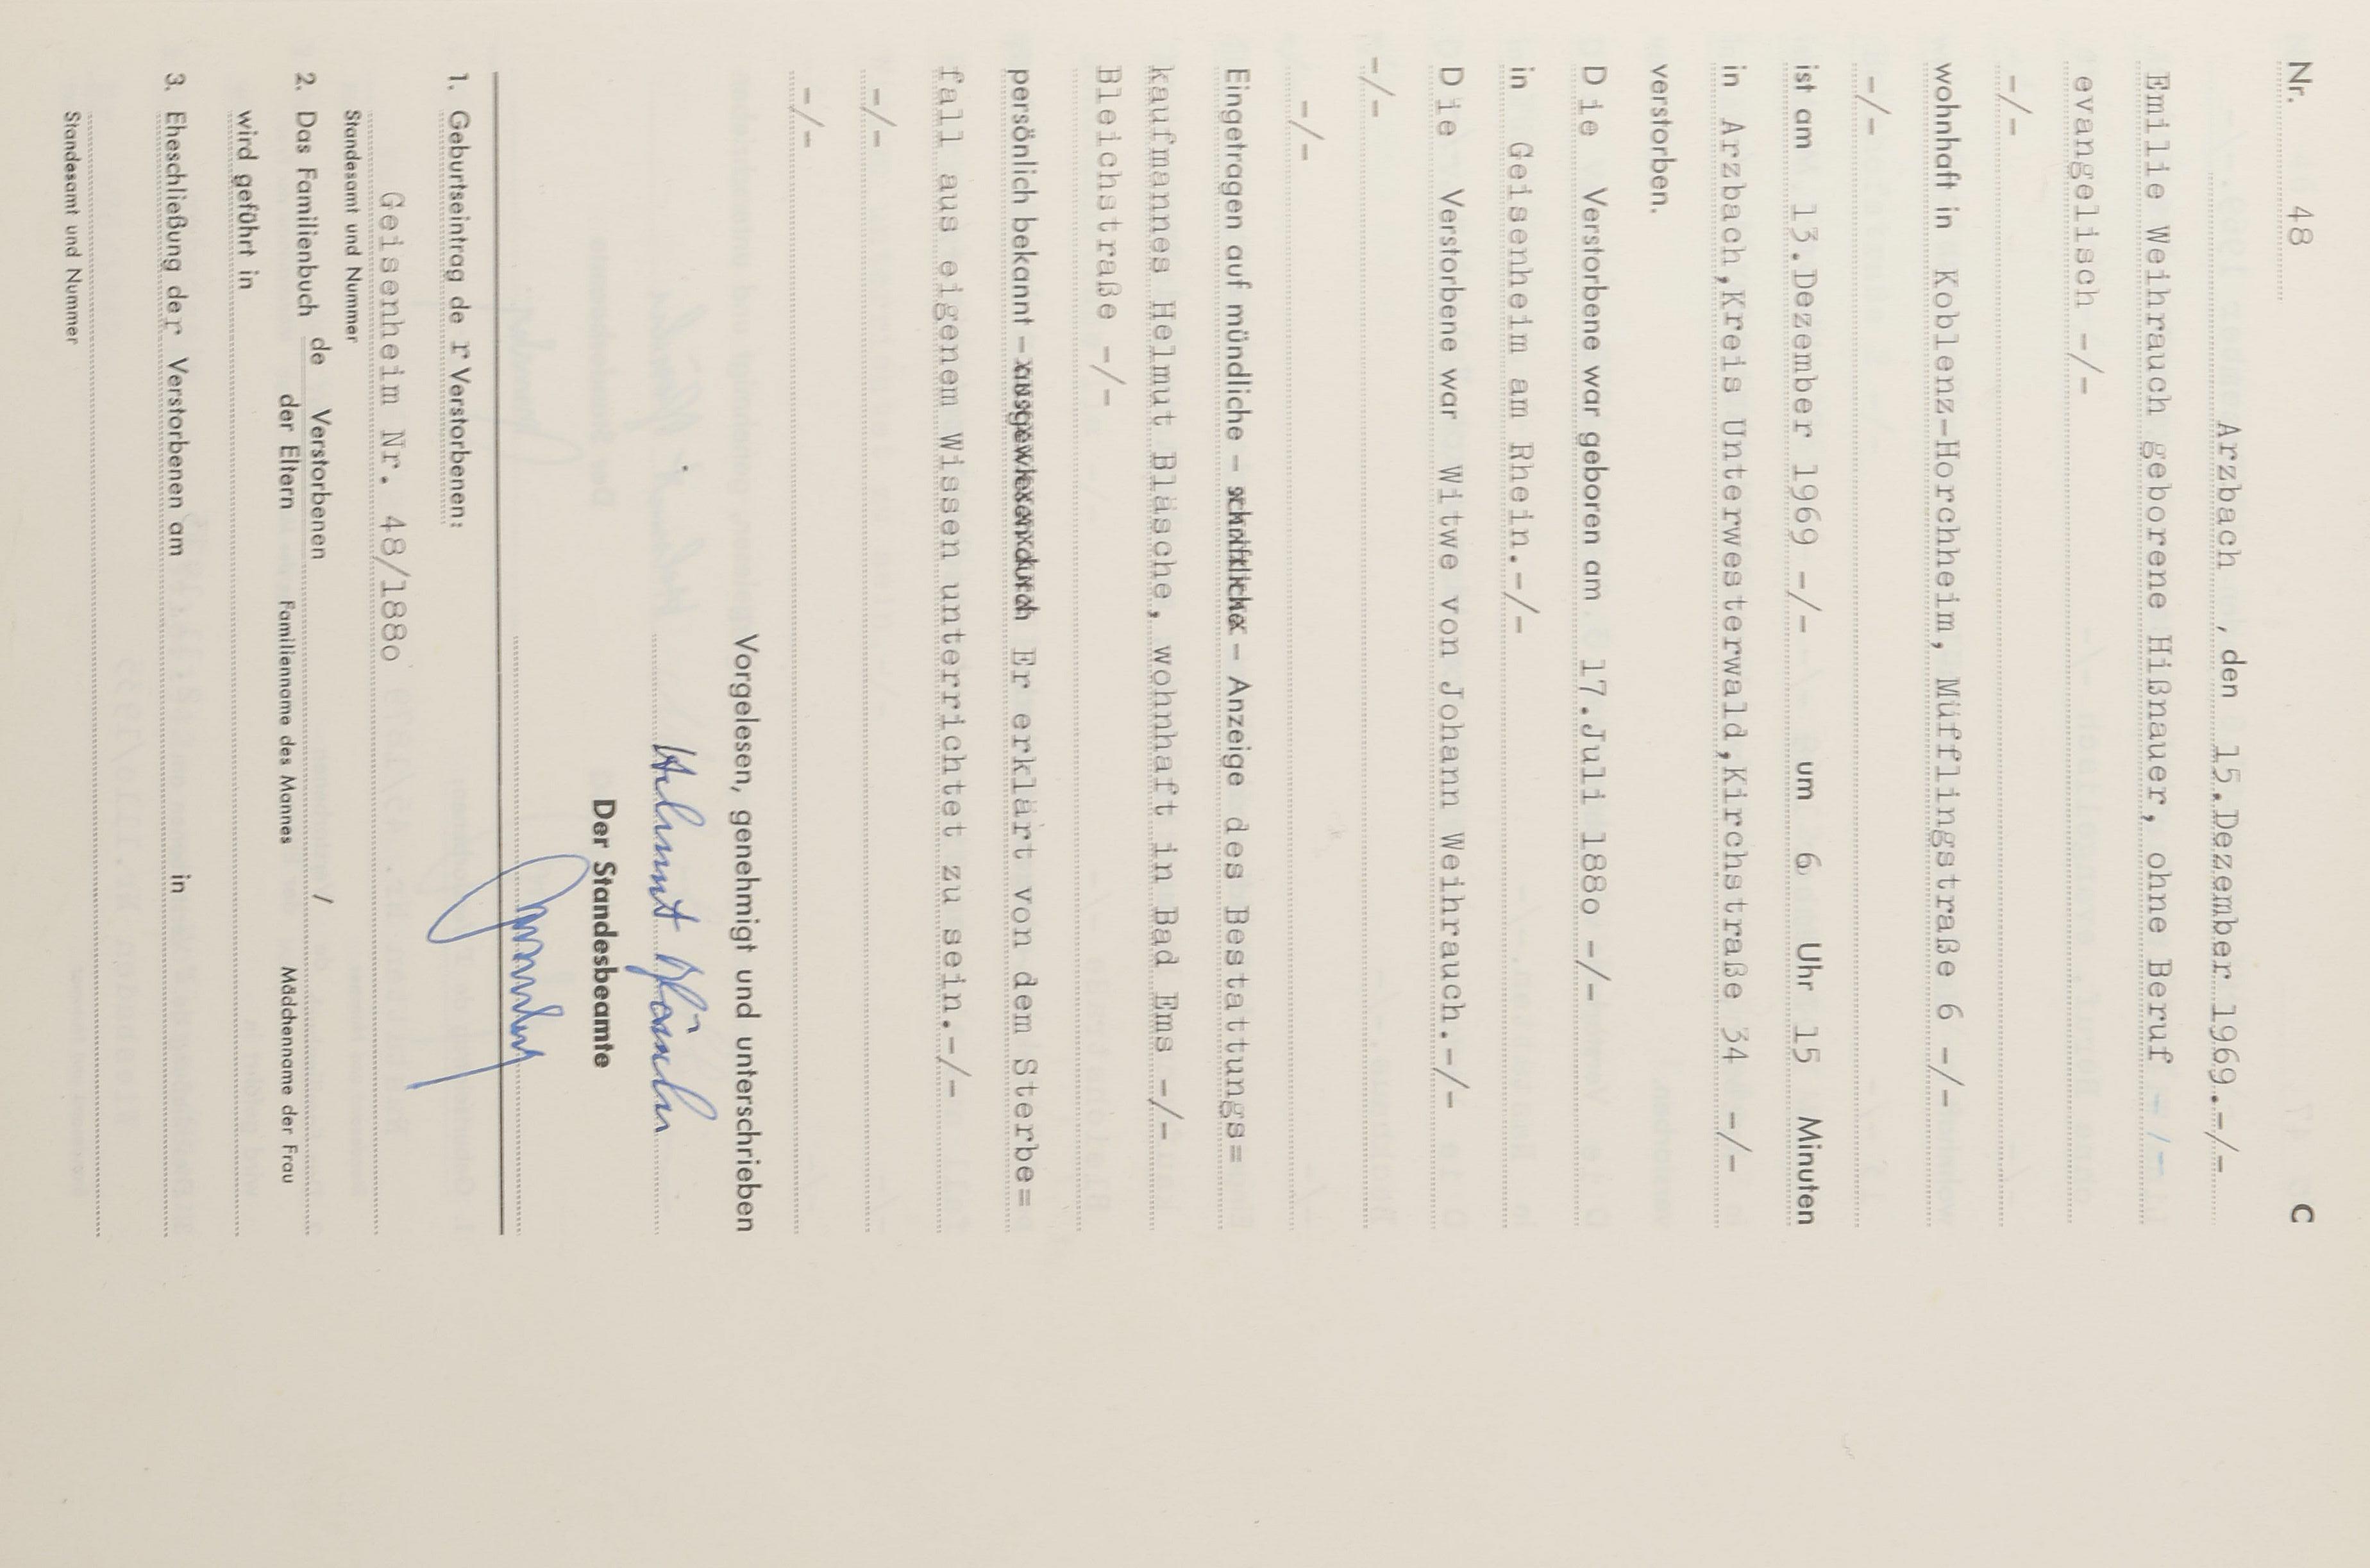 Nr. 48 C
Arzbach, den 15.Dezember 1969.-/-
Emilie Weihrauch geborene Hißnauer, ohne Beruf -/-
evangelisch -/-
-/-
wohnhaft in Koblenz-Horchheim, Müfflingstraße 6 -/-
-/-
ist am 13.Dezember 1969 -/- um 6 Uhr 15 Minuten
in Arzbach,Kreis Unterwesterwald,Kirchstraße 34 -/-
verstorben.
Die Verstorbene war geboren am 17.Juli 188o -/-
in Geisenheim am Rhein.-/-
Die Verstorbene war Witwe von Johann Weihrauch.-/-
-/-
-/-
Eingetragen auf mündliche - schriftliche - Anzeige des Bestattungs=
kaufmannes Helmut Bläsche, wohnhaft in Bad Ems -/-
Bleichstraße -/-
persönlich bekannt - ausgewiesen durch Er erklärt von dem Sterbe=
fall aus eigenem Wissen unterrichtet zu sein.-/-
-/-
-/-
Vorgelesen, genehmigt und unterschrieben
Helmut Bläsche
Der Standesbeamte
1. Geburtseintrag der Verstorbenen:
Geisenheim Nr. 48/188o
Standesamt und Nummer
2. Das Familienbuch de Verstorbenen /
der Eltern Familienname des Mannes Mädchenname der Frau
wird geführt in
3. Eheschließung der Verstorbenen am in
Standesamt und Nummer